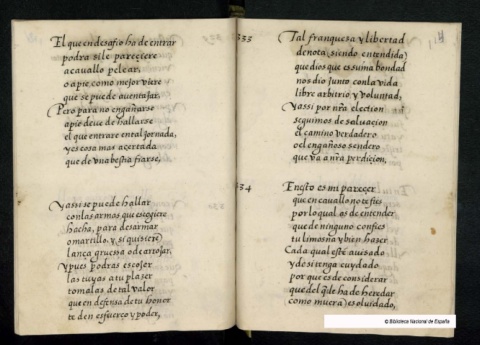 El que en desafio ha de entrar
podra si le pareçiere
a cauallo pelear,
o a pie como mejor viere
que se puede auentajar.
Pero para no engañarse
a pie deue de hallarse
el que entrare en tal jornada,
y es cosa mas açertada
que de vna bestia fiarse,
Y assi se puede hallar
con las armas que escogiere
hacha, para desarmar
o martillo, y si quisiere
lança gruessa o de arrojar,
Y pues podras escoјer
las tuyas a tu plazer
tomalas de tal valor
que en defensa de tu honor
te den esfuerço y poder,
333
114
Tal franqueza y libertad
denota, siendo entendida
que dios que es suma bondad
nos dio junto con la vida
libre arbitrio y voluntad,
Y assi por nr̃a election
seguimos de saluaçion
el camino verdadero
o el engañoso sendero
que va a nr̃a perdiçion,
334
En esto es mi pareçer
que en cauallo no te fies
por lo qual as de entender
que de ninguno confies
tu limosna y bien hazer
Cada qual esté auisado
y de si tenga cuydado
por que es de considerar
que del q̃ de ha de heredar
como muera, es oluidado,
© Biblioteca Nacional de España